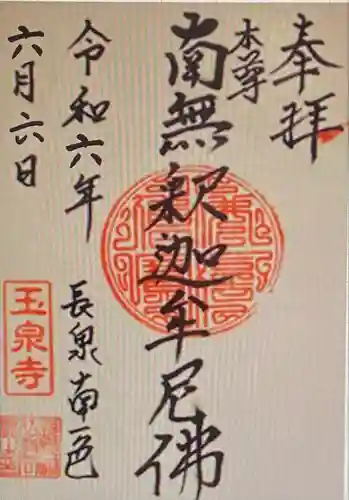 奉拝
本尊
南無釈迦牟尼佛
令和六年
六月六日
長泉南一色
玉泉寺